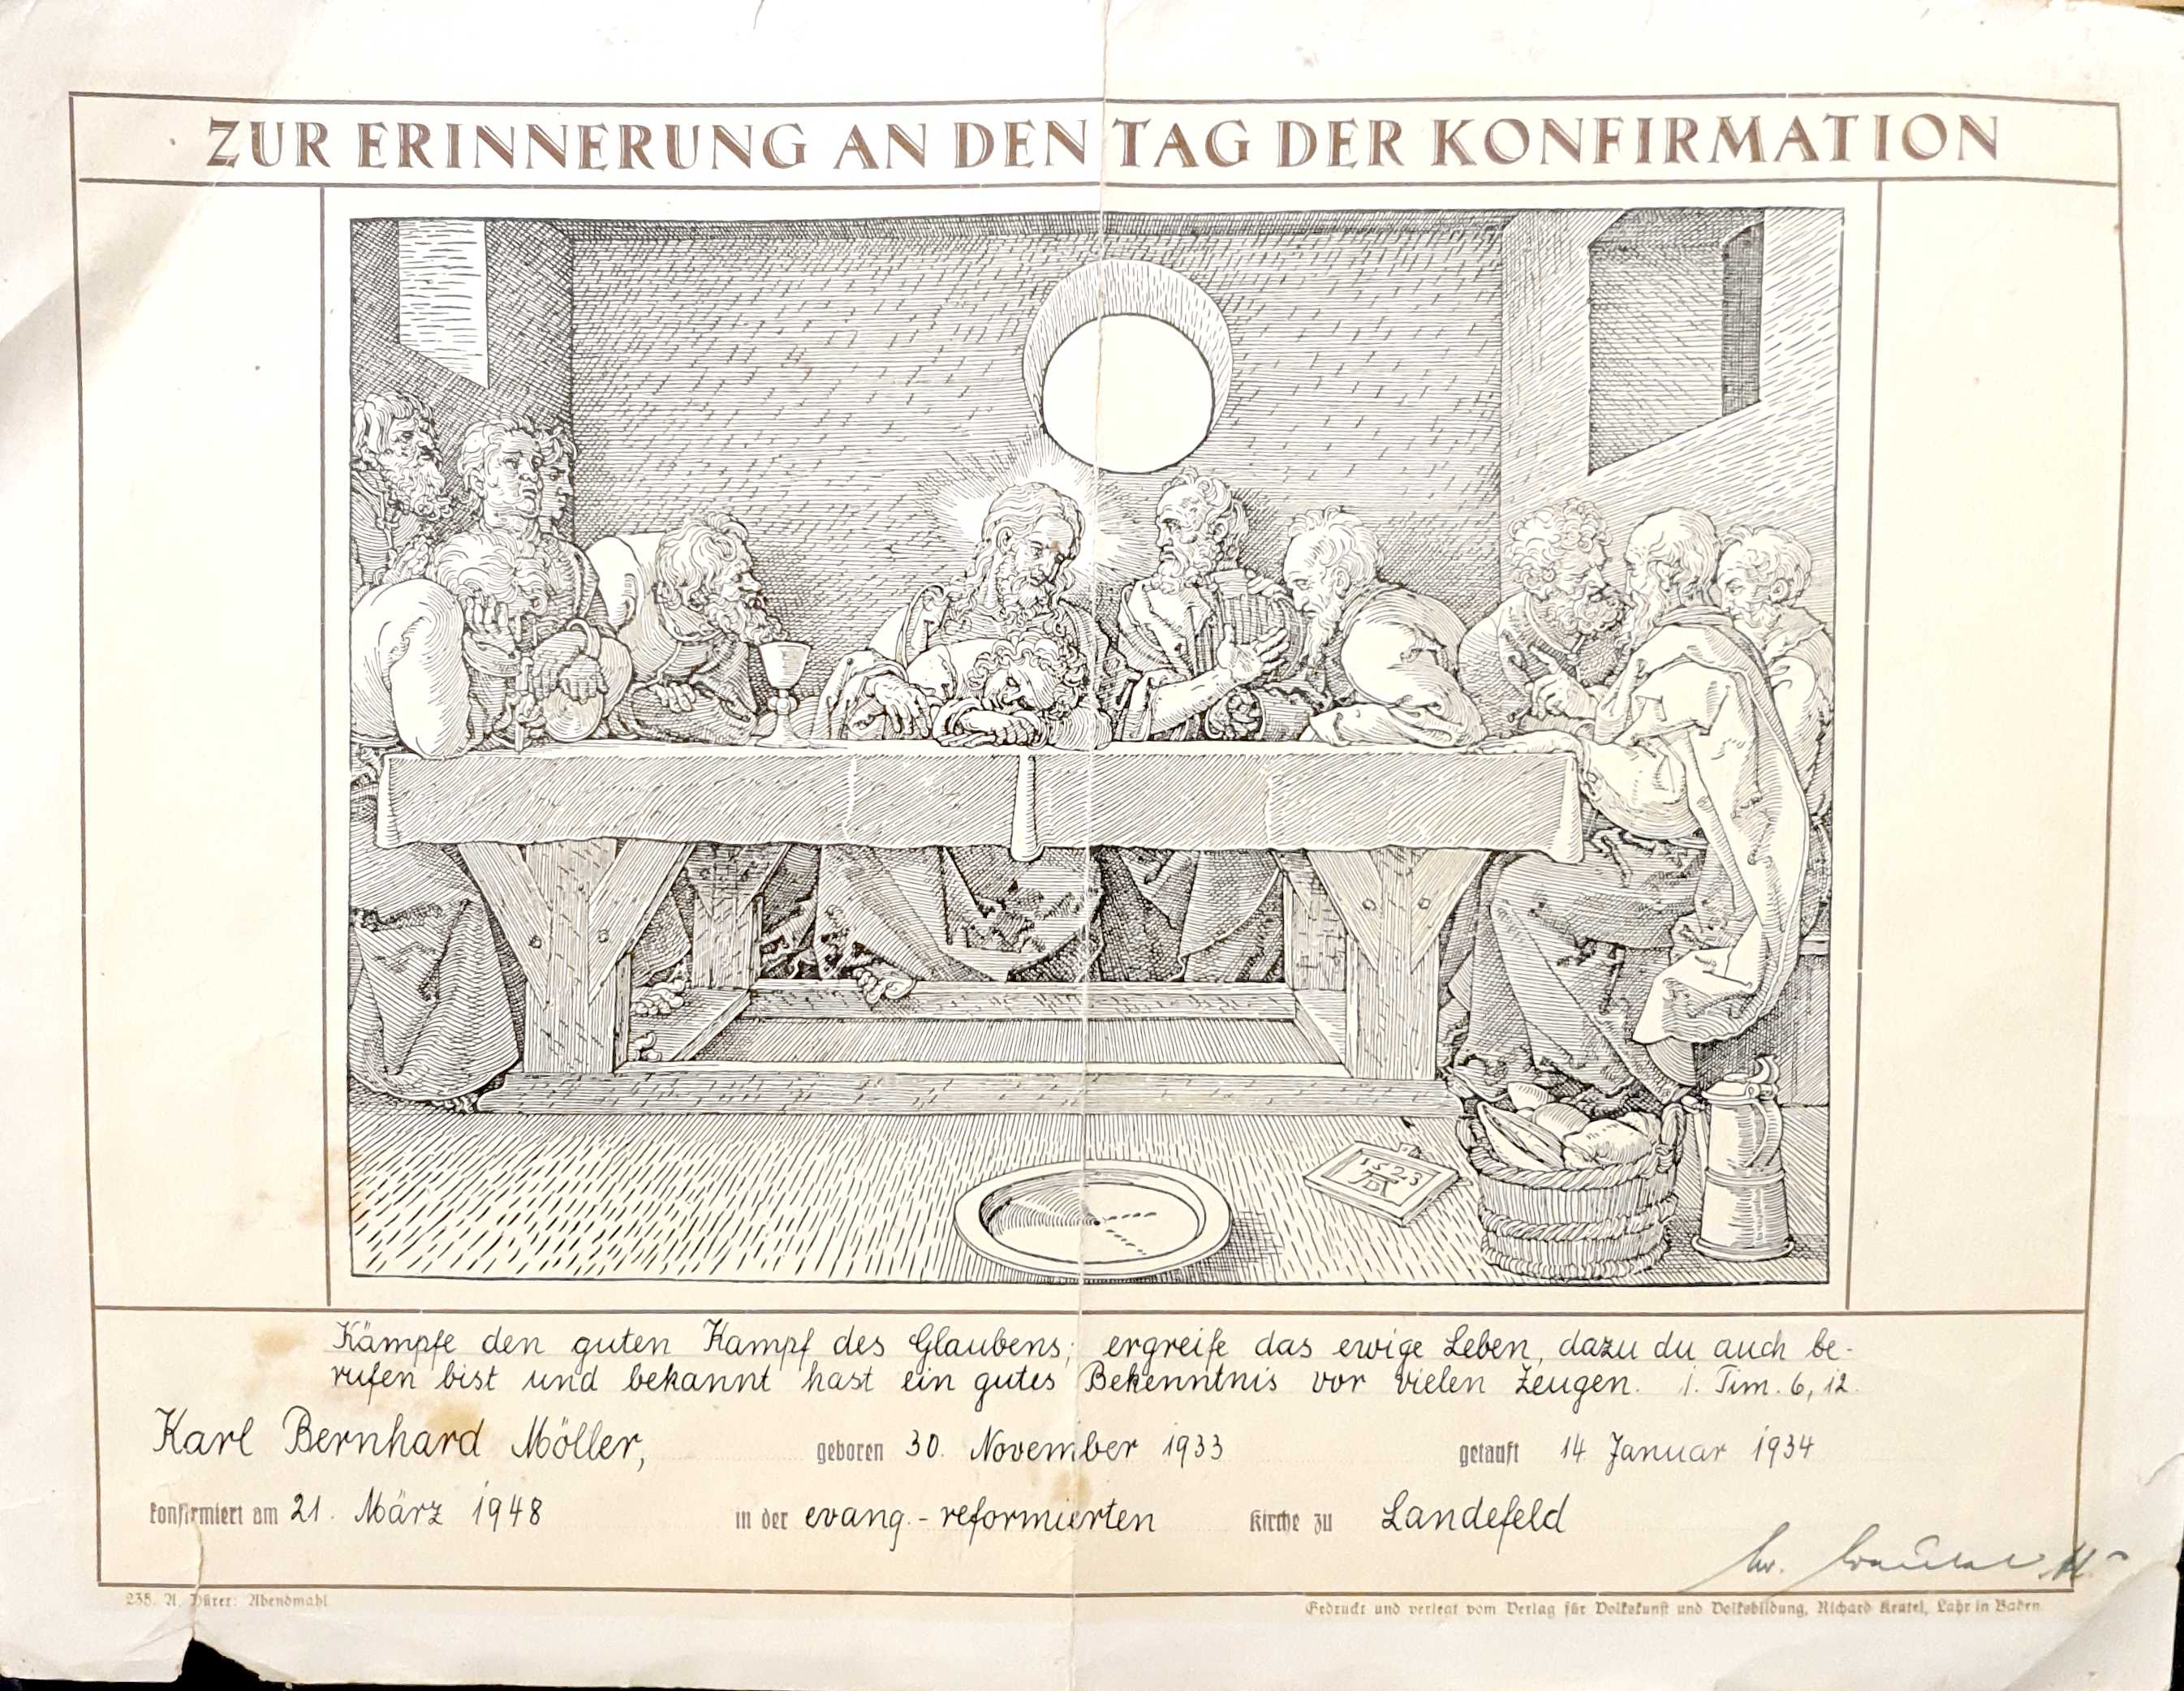 ZUR ERINNERUNG AN DEN TAG DER KONFIRMATION
1523
AD
Kämpfe den guten Kampf des Glaubens; ergreife das ewige Leben, dazu du auch be-
rufen bist und bekannt hast ein gutes Bekenntnis vor vielen Zeugen. 1. Tim. 6, 12.
Karl Bernhard Möller, geboren 30. November 1933 getauft 14 Januar 1934
konfirmiert am 21. März 1948 in der evang.-reformierten Kirche zu Landefeld
235. A. Dürer: Abendmahl Gedruckt und verlegt vom Verlag für Volkskunst und Volksbildung, Richard Keutel, Lahr in Baden